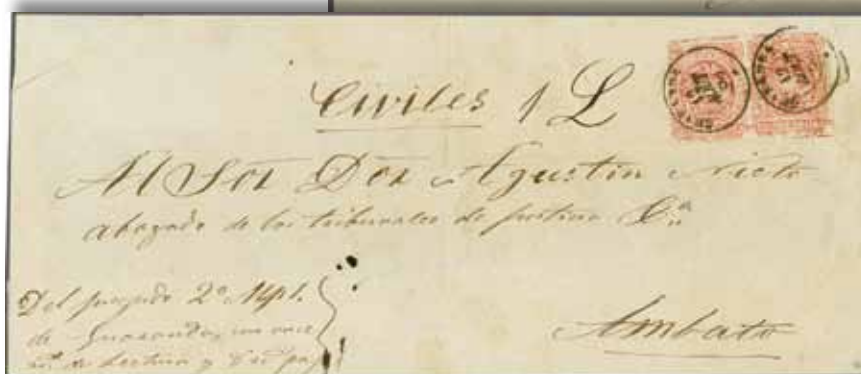 Civiles 1 L
Al Sor Dor Agustin Nieto
abogado de los tribunales de justicia &.a
Del juzgado 2º Mpl.
de Guaranda, un once
de lectura y
Ambato